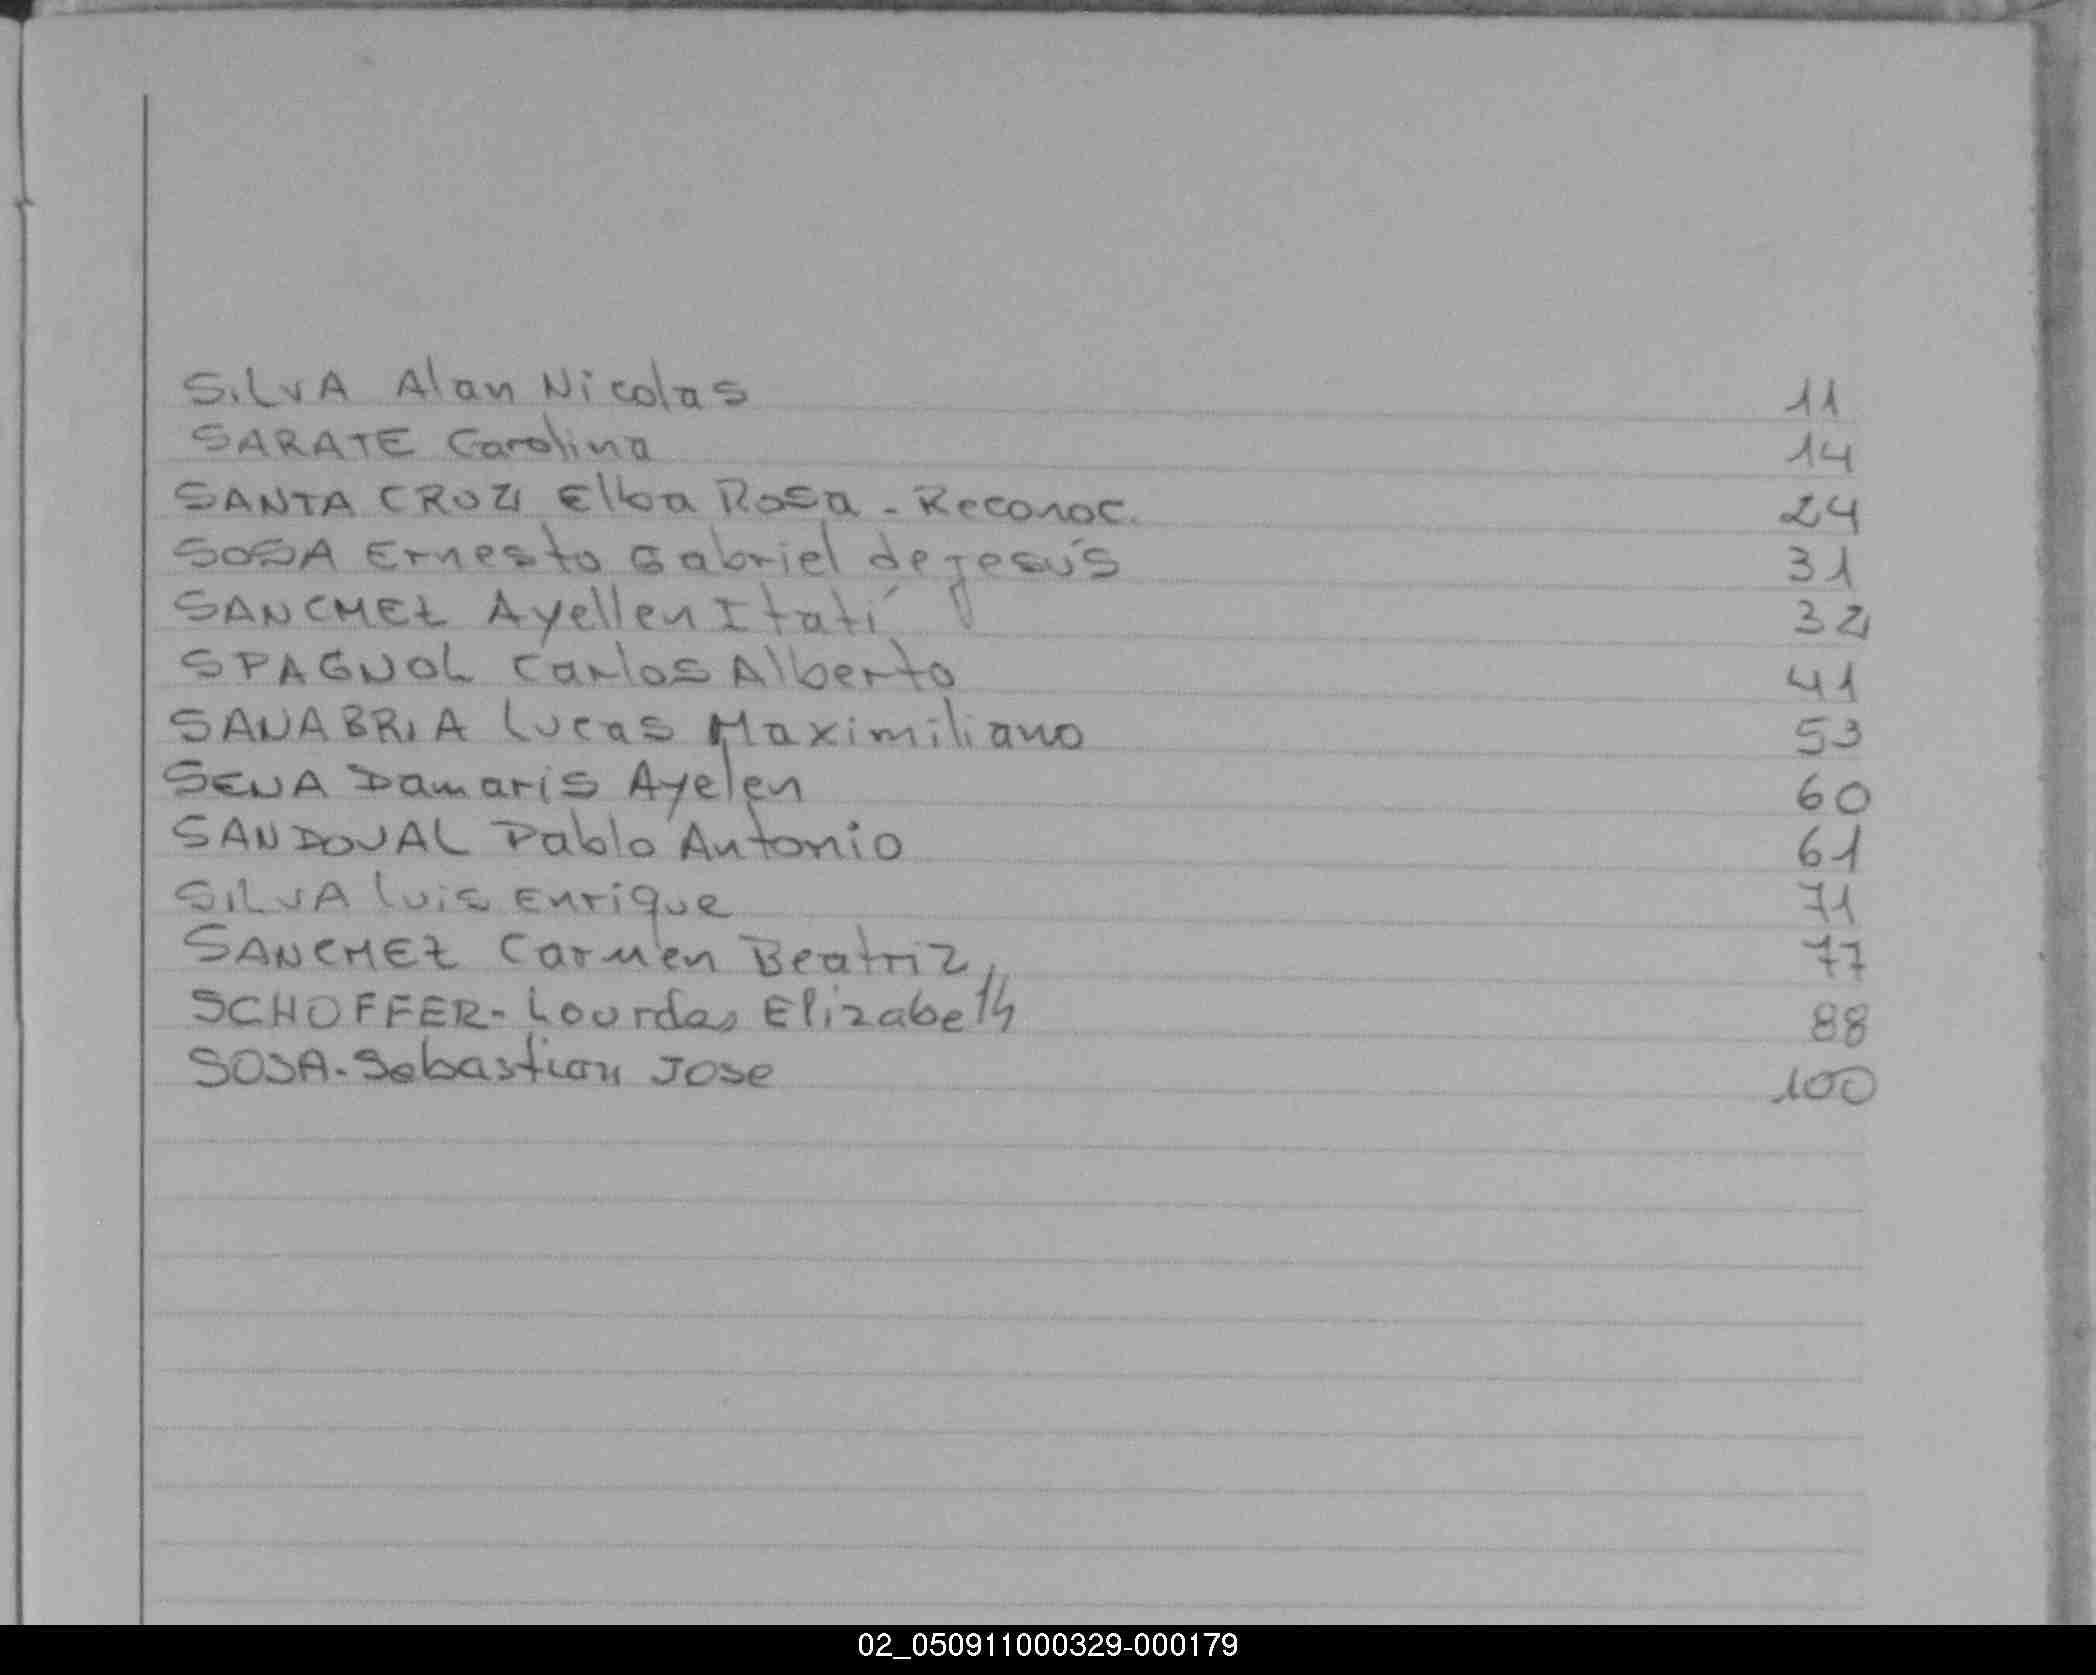 SILVA Alan Nicolas 11
SARATE Carolina 14
SANTA CRUZ Elba Rosa - Reconoc. 24
SOSA Ernesto Gabriel de Jesús 31
SANCHEZ Ayellen Itatí 32
SPAGNOL Carlos Alberto 41
SANABRIA Lucas Maximiliano 53
SENA Damaris Ayelen 60
SANDOVAL Pablo Antonio 61
SILVA Luis Enrique 71
SANCHEZ Carmen Beatriz 77
SCHOFFER - Lourdes Elizabeth 88
SOSA - Sebastian Jose 100
02_050911000329-000179